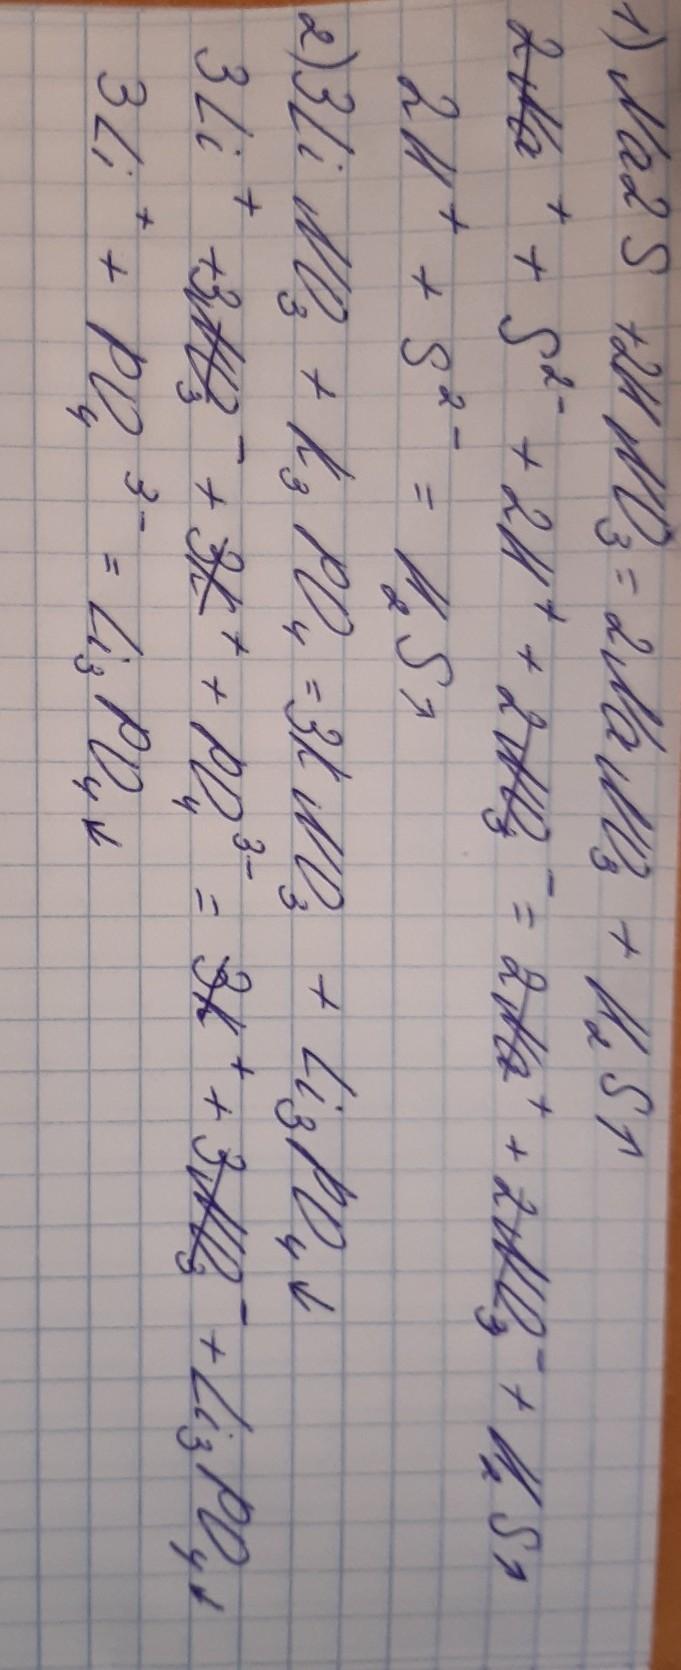 1) Na2S + 2HNO₃ = 2NaNO₃ + H₂S↑
2Na⁺ + S²⁻ + 2H⁺ + 2NO₃⁻ = 2Na⁺ + 2NO₃⁻ + H₂S↑
2H⁺ + S²⁻ = H₂S↑
2) 3LiNO₃ + K₃PO₄ = 3KNO₃ + Li₃PO₄↓
3Li⁺ + 3NO₃⁻ + 3K⁺ + PO₄³⁻ = 3K⁺ + 3NO₃⁻ + Li₃PO₄↓
3Li⁺ + PO₄³⁻ = Li₃PO₄↓